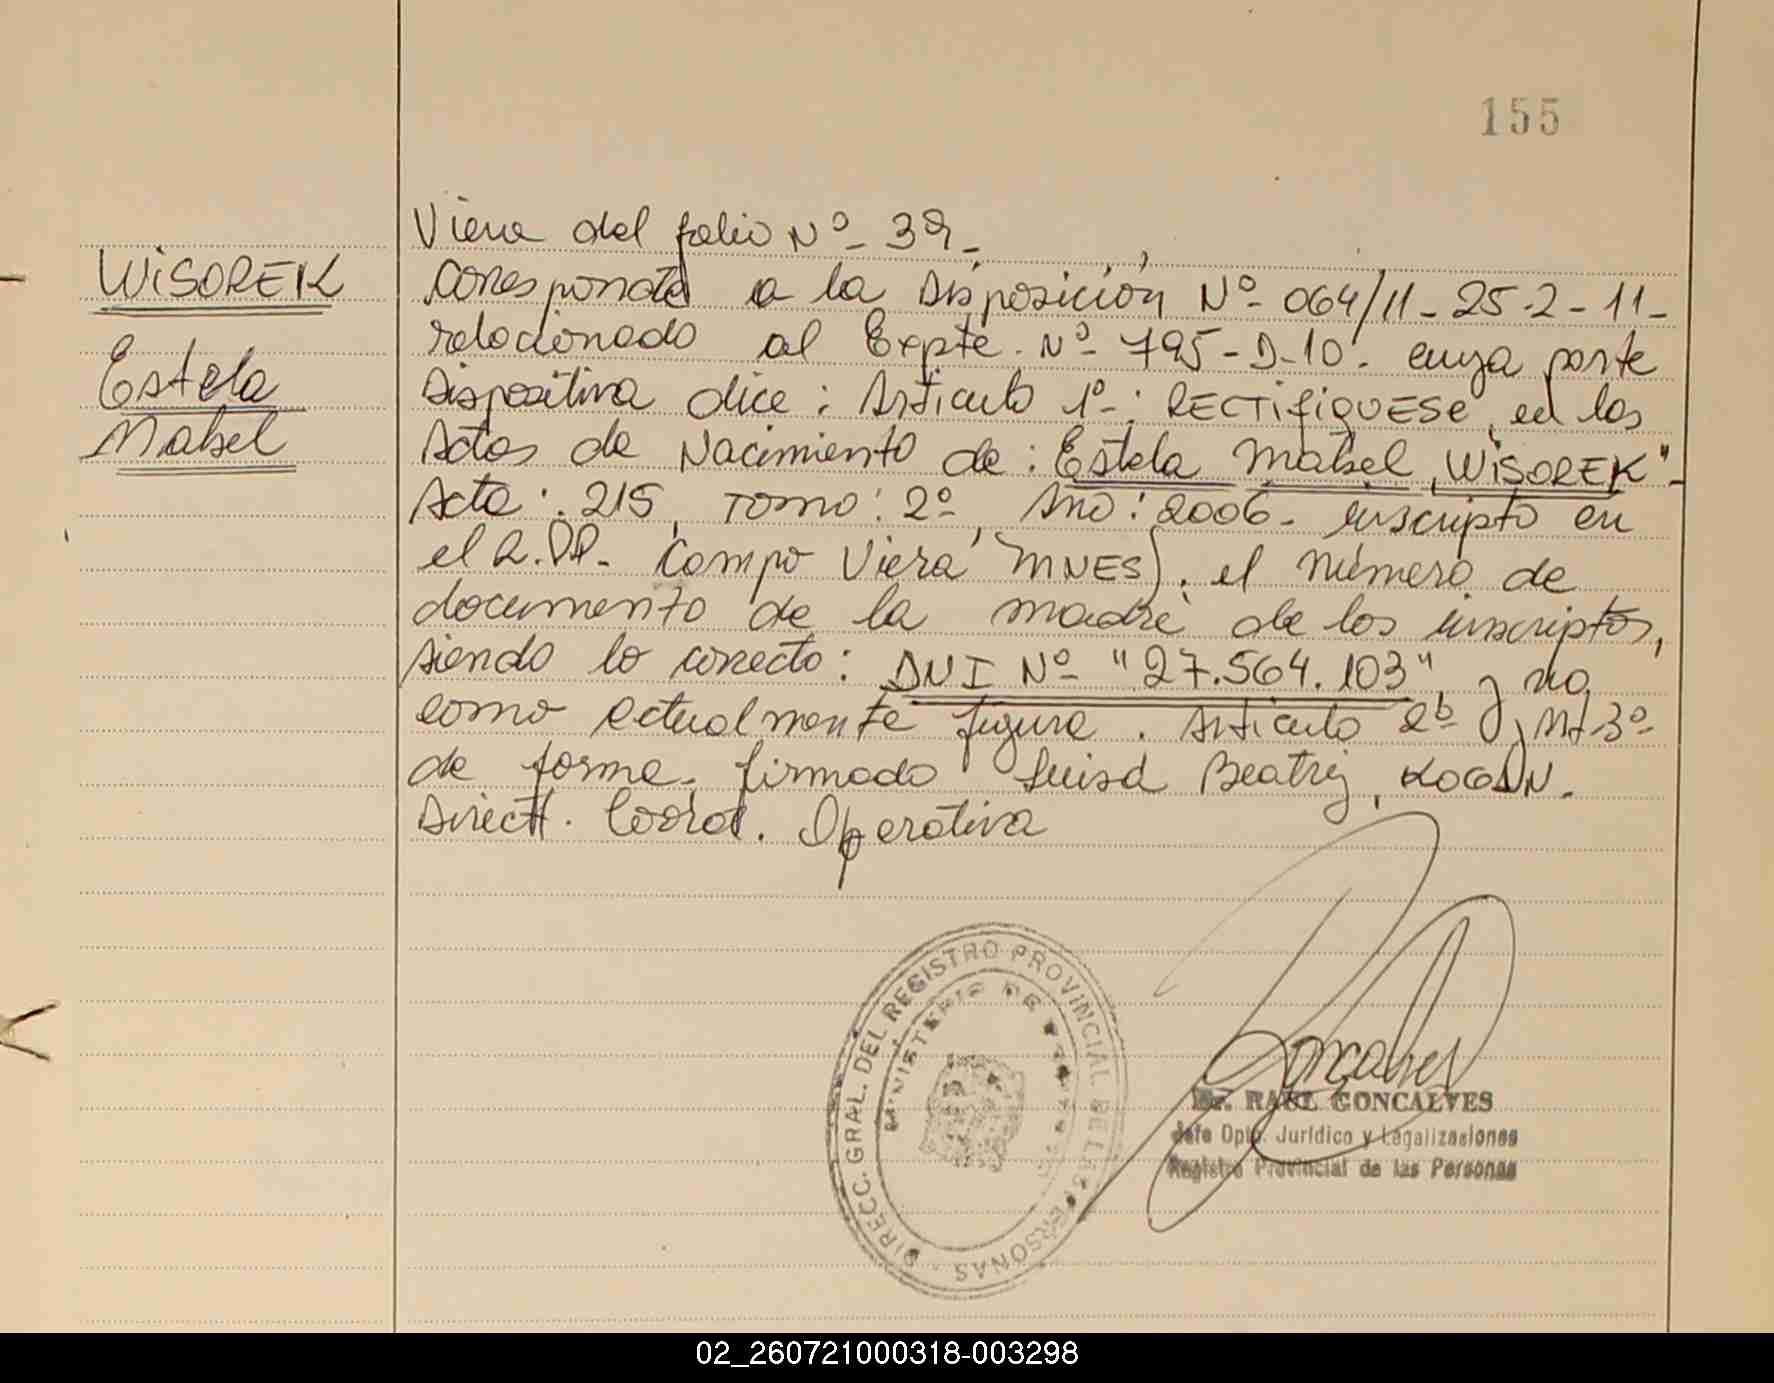 155
WISOREK
Estela
Mabel
Viene del folio Nº- 39-
Corresponde a la Disposición Nº- 064/11- 25-2-11-
relacionado al Expte. Nº- 795-D-10. cuya parte
Dispositiva dice: Articulo 1º-: RECTIFIQUESE en las
Actas de Nacimiento de: "Estela Mabel WISOREK"-
Acta: 215, Tomo: 2º, Año: 2006- inscripto en
el R.PP. Campo Viera (MNES), el número de
documento de la madre de los inscriptos,
siendo lo correcto: DNI Nº "27.564.103", y no
como actualmente figura. Articulo 2º y Art 3º-
de forma. firmado Luisa Beatriz KOGAN.
Direct. Coord. Operativa
DIRECC. GRAL. DEL REGISTRO PROVINCIAL DE LAS PERSONAS
MINISTERIO DE
Goncalves
Dr. RAUL GONCALVES
Jefe Dpto. Jurídico y Legalizaciones
Registro Provincial de las Personas
02_260721000318-003298